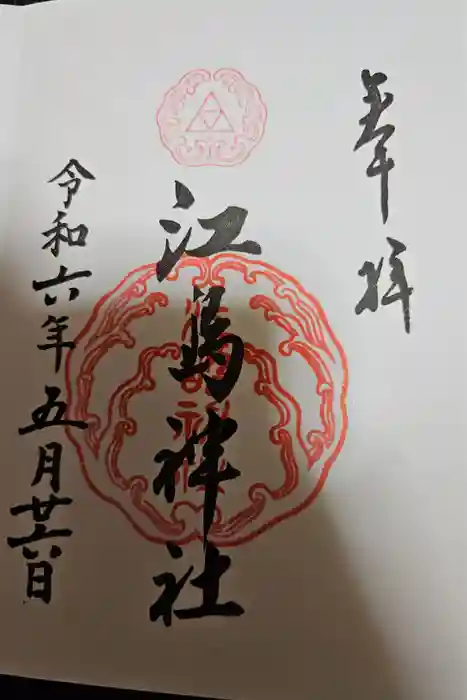 奉拝
江島神社
令和六年五月廿六日